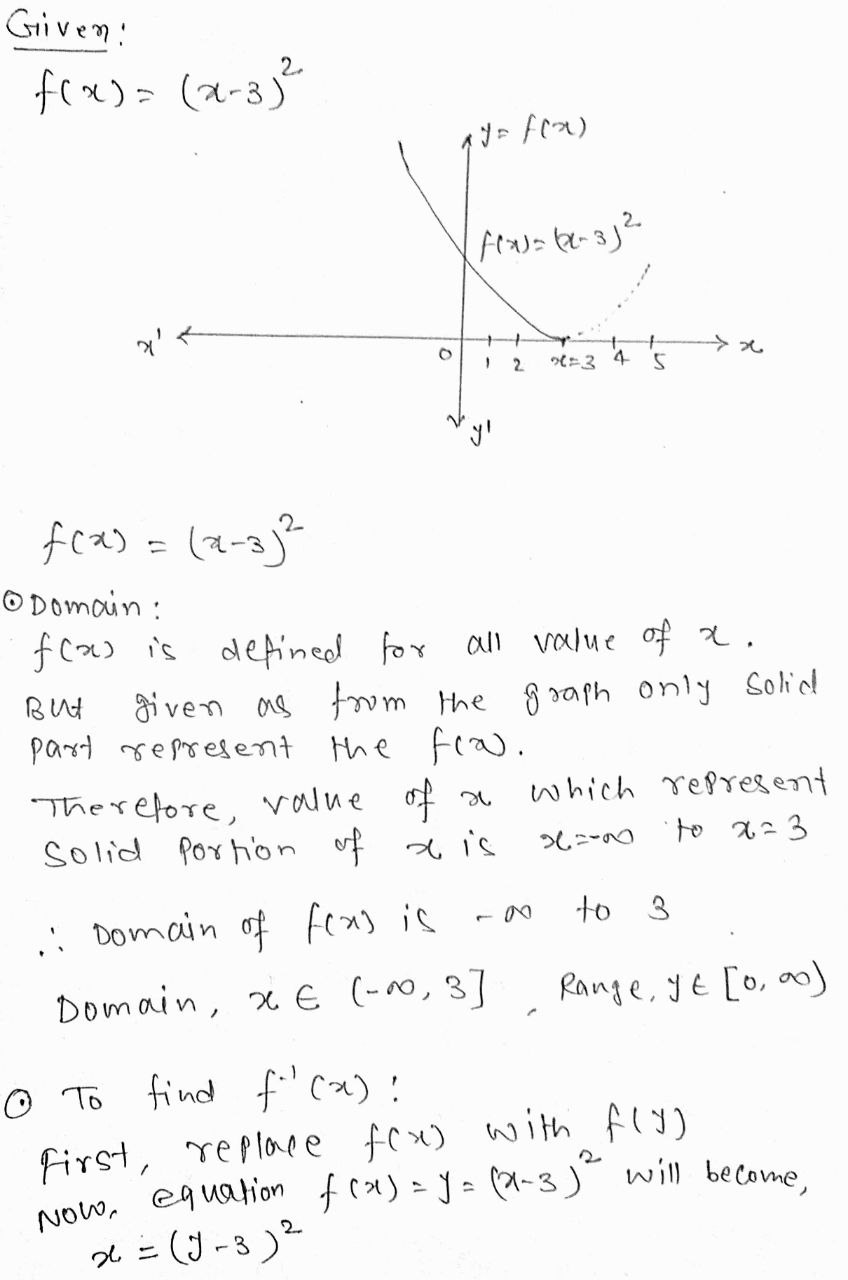 Given:
f(x) = (x-3)²
y = f(x)
f(x) = (x-3)²
x' 0 1 2 x=3 4 5 x
y'
f(x) = (x-3)²
⊙ Domain:
f(x) is defined for all value of x.
But given as from the graph only solid
part represent the f(x).
Therefore, value of x which represent
solid portion of x is x=-∞ to x=3
∴ Domain of f(x) is -∞ to 3
Domain, x ∈ (-∞, 3] , Range, y ∈ [0, ∞)
⊙ To find f⁻¹(x):
First, replace f(x) with f(y)
Now, equation f(x) = y = (x-3)² will become,
x = (y-3)²